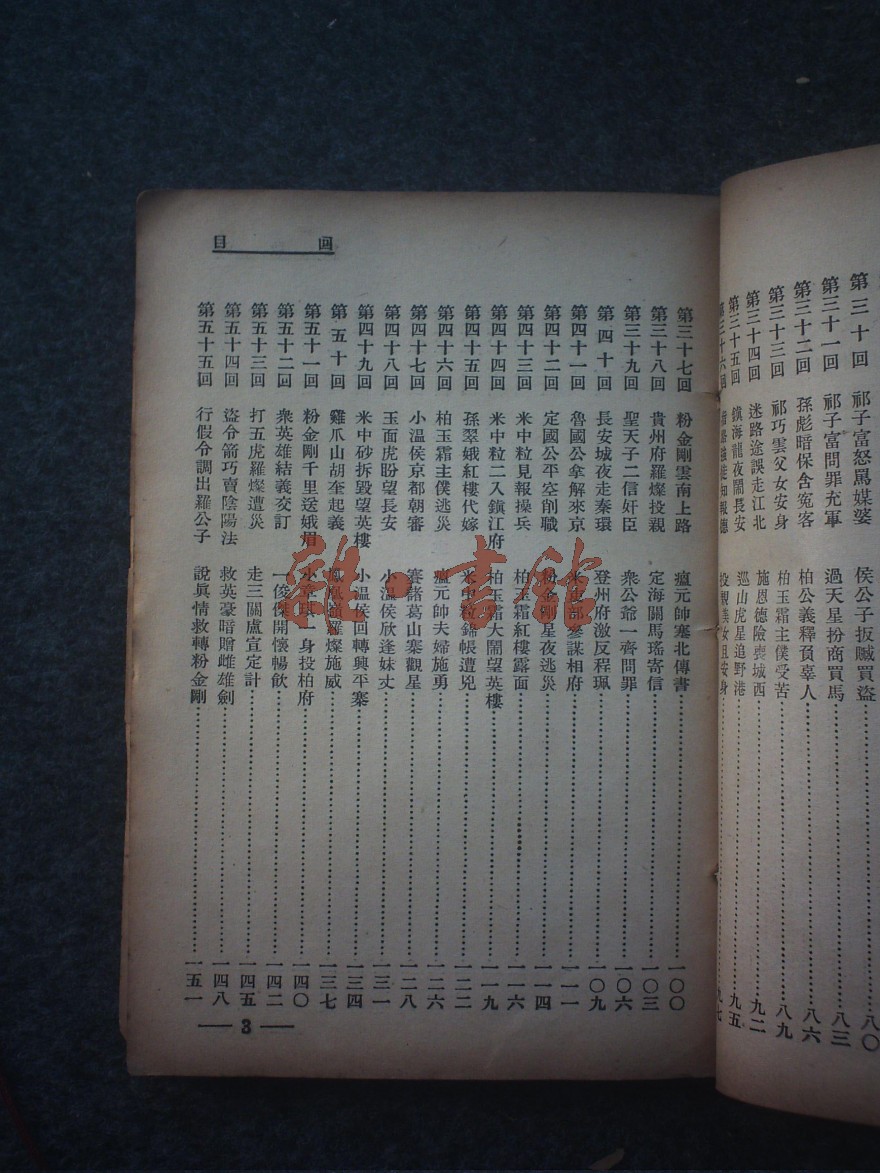 第三十回 祁子富怒罵媒婆 侯公子扳贓買盜 八〇
第三十一回 祁子富問罪充軍 過天星扮商買馬 八三
第三十二回 孫彪暗保含寃客 柏公義釋負辜人 八六
第三十三回 祁巧雲父女安身 柏玉霜主僕受苦 八九
第三十四回 迷路途誤走江北 施恩德險喪城西 九二
第三十五回 鎮海龍夜鬧長安 巡山虎星追野港 九五
第三十六回 知報德 安身 九七
回目
第三十七回 粉金剛雲南上路 瘟元帥塞北傳書 一〇〇
第三十八回 貴州府羅燦投親 定海關馬瑤寄信 一〇三
第三十九回 聖天子二信奸臣 衆公爺一齊問罪 一〇六
第四十回 長安城夜走秦環 登州府激反程珮 一〇九
第四十一回 魯國公拿解來京 米吏部參謀相府 一一一
第四十二回 定國公平空削職 粉金剛星夜逃災 一一四
第四十三回 米中粒見報操兵 柏玉霜紅樓露面 一一六
第四十四回 米中粒二入鎮江府 柏玉霜大鬧望英樓 一一九
第四十五回 孫翠娥紅樓代嫁 米中粒錦帳遭兇 一二二
第四十六回 柏玉霜主僕逃災 瘟元帥夫婦施勇 一二六
第四十七回 小溫侯京都朝審 賽諸葛山寨觀星 一二八
第四十八回 玉面虎盼望長安 小溫侯欣逢妹丈 一三一
第四十九回 米中砂拆毀望英樓 小溫侯回轉興平寨 一三四
第五十回 雞爪山胡奎起義 鳳凰嶺羅燦施威 一三七
第五十一回 粉金剛千里送娥眉 小章琪一身投柏府 一四〇
第五十二回 衆英雄結義交訂 一俊傑開懷暢飲 一四二
第五十三回 打五虎羅燦遭災 走三關盧宣定計 一四五
第五十四回 盜令箭巧賣陰陽法 救英豪暗贈雌雄劍 一四八
第五十五回 行假令調出羅公子 說眞情救轉粉金剛 一五一
— 3 —
雜·書館